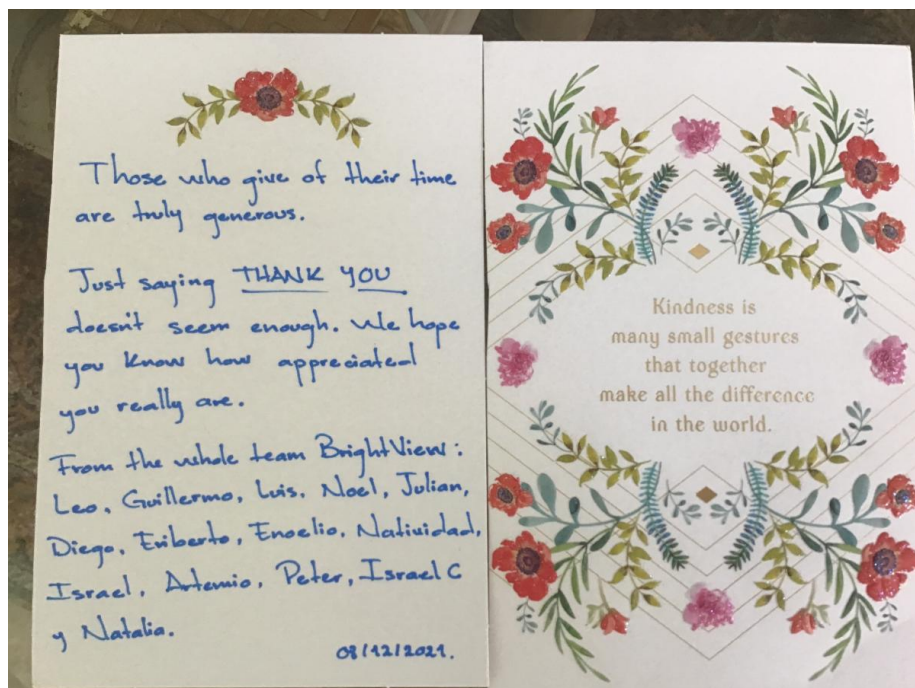 Those who give of their time
are truly generous.
Just saying THANK YOU
doesn't seem enough. We hope
you know how appreciated
you really are.
From the whole team BrightView:
Leo, Guillermo, Luis, Noel, Julian,
Diego, Eriberto, Enoelio, Natividad,
Israel, Artemio, Peter, Israel C
y Natalia.
08/12/2021.
Kindness is
many small gestures
that together
make all the difference
in the world.